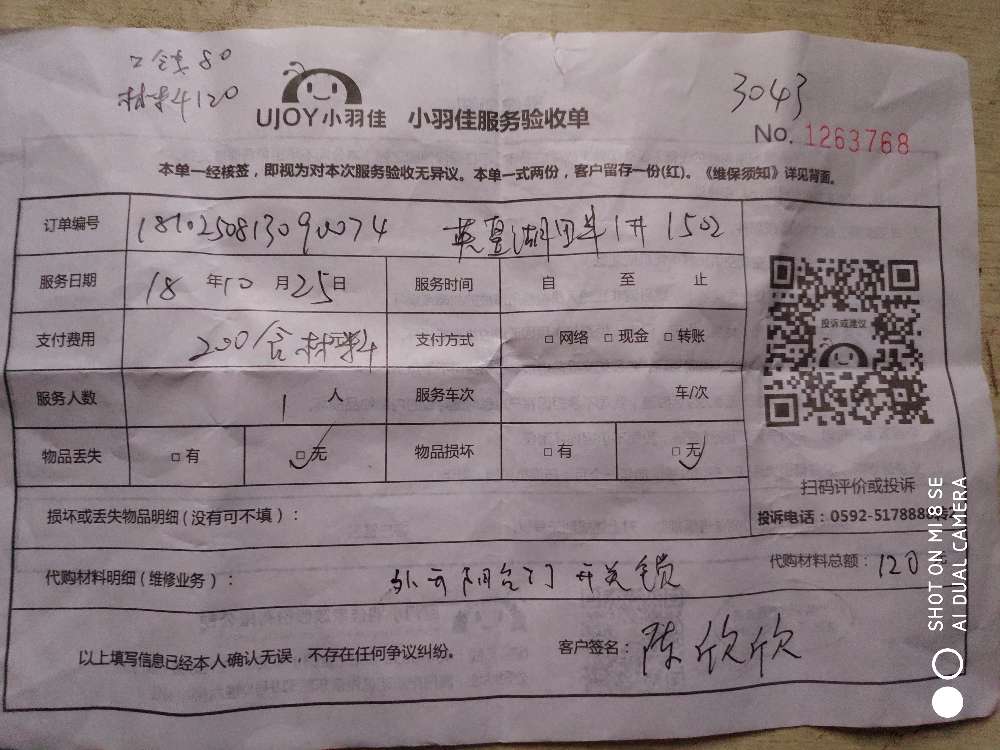 工钱80
材料120
3043
UJOY小羽佳 小羽佳服务验收单
No. 1263768
本单一经核签，即视为对本次服务验收无异议。本单一式两份，客户留存一份(红)。《维保须知》详见背面。
订单编号 湖 1502
服务日期 18 年10 月25日 服务时间 自 至 止
支付费用 200/含材料 支付方式 □ 网络 □ 现金 □ 转账
服务人数 1 人 服务车次 车/次
物品丢失 □ 有 □ 无 物品损坏 □ 有 □ 无
投诉或建议
扫码评价或投诉
投诉电话：0592-5178888转2
损坏或丢失物品明细（没有可不填）：
代购材料明细（维修业务）： 阳台门 开关锁 代购材料总额：120 元
以上填写信息已经本人确认无误，不存在任何争议纠纷。 客户签名：陈欣欣
SHOT ON MI 8 SE
AI DUAL CAMERA